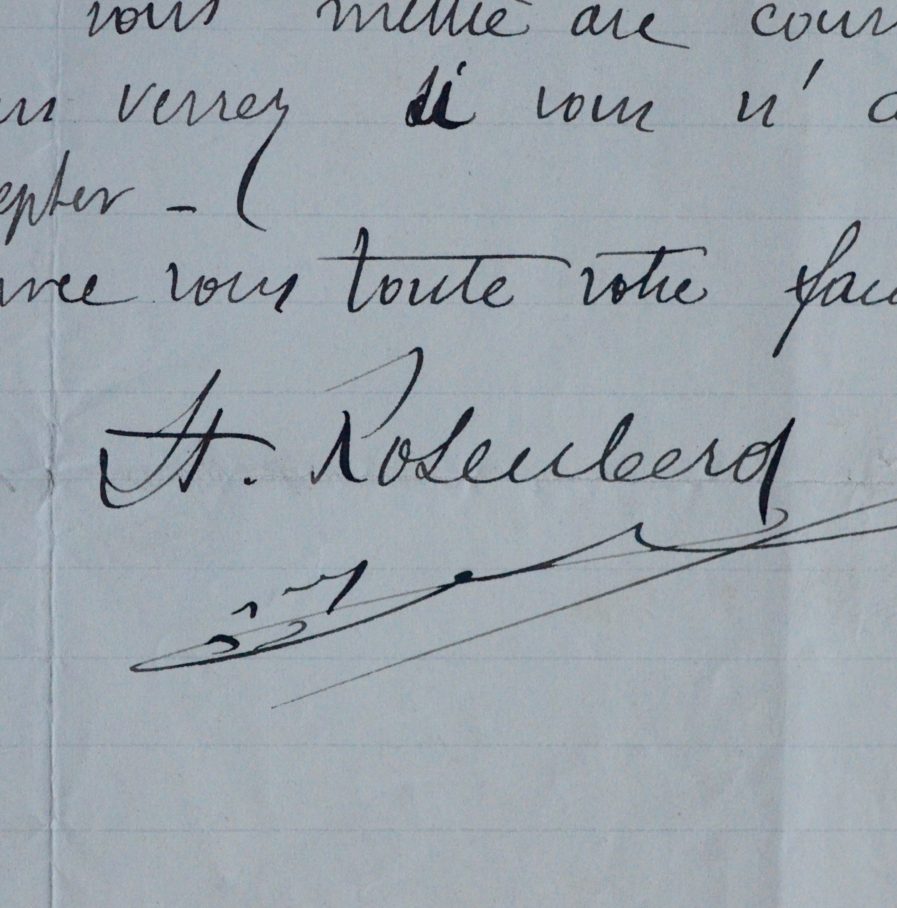 vous mettre au cour
verrez si vous n'
epter -
avec vous toute votre fam
St. Rosenberg